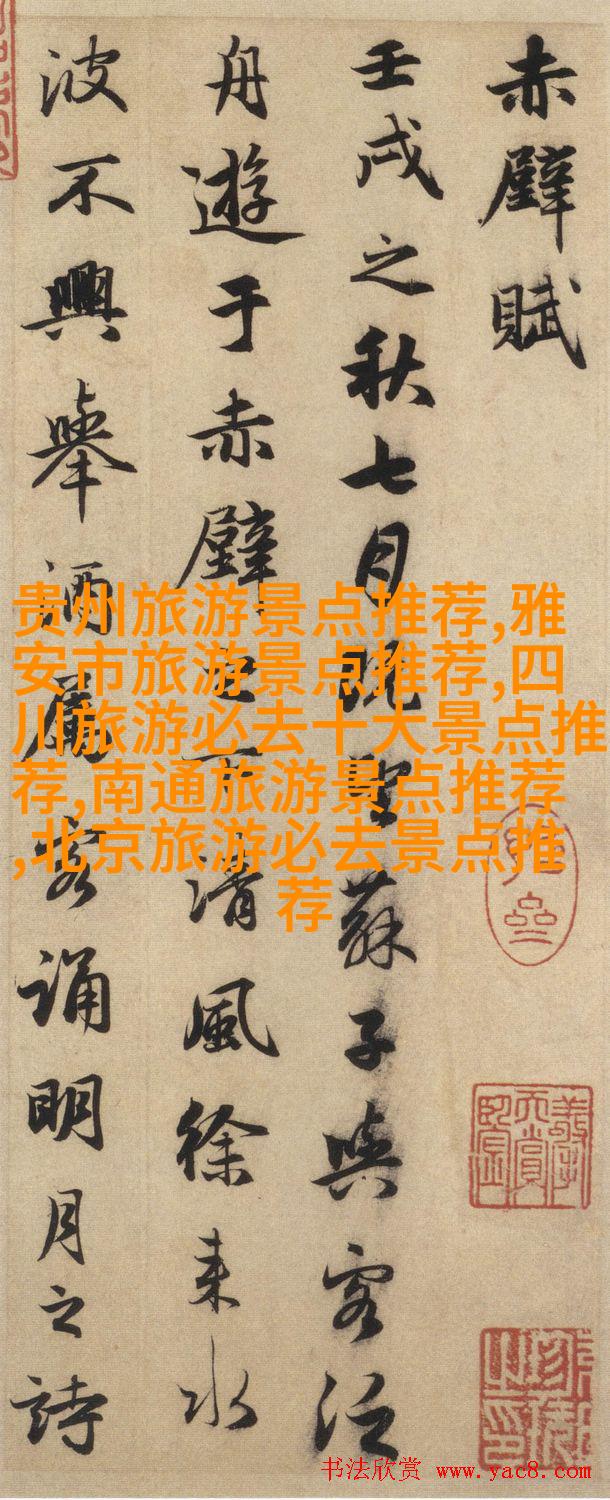 赤壁賦
壬戌之秋七月既望蘇子與客泛
舟遊于赤壁之下清風徐来水
波不興舉酒属客誦明月之詩
贵州旅游景点推荐,雅
安市旅游景点推荐,四
川旅游必去十大景点推
荐,南通旅游景点推荐
,北京旅游必去景点推
荐
书法欣赏 www.yac8.com